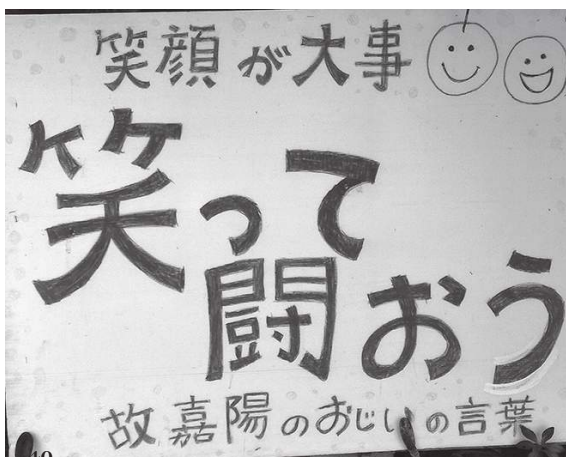 笑顔が大事
笑って
闘おう
故嘉陽のおじいの言葉